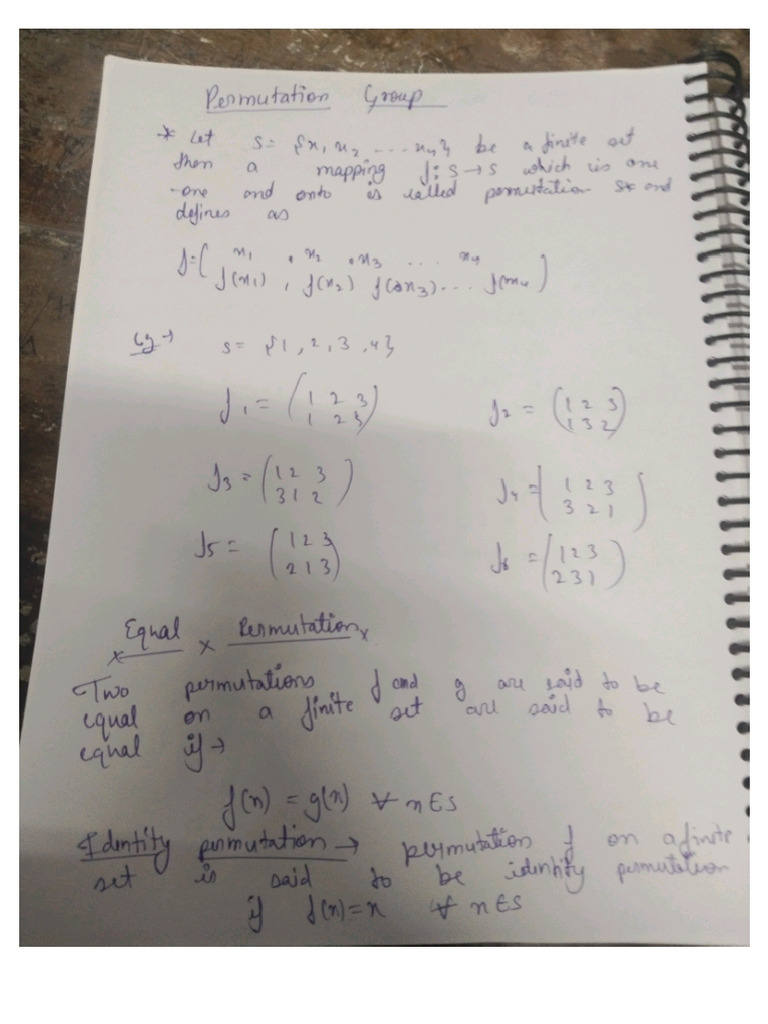 Permutation Group
* Let S = {x1, x2 ... x4} be a finite set
then a mapping f: S → S which is one
-one and onto is called permutation and
defines as
f = ( x1 , x2 , x3 ... x4
f(x1) , f(x2) f(x3) ... f(x4 )
Eg → S = {1, 2, 3, 4}
f1 = (1 2 3 f2 = (1 2 3
1 2 3) 1 3 2)
f3 = (1 2 3 f4 = (1 2 3
3 1 2) 3 2 1)
f5 = (1 2 3 f6 = (1 2 3
2 1 3) 2 3 1)
Equal x Permutation x
Two permutations f and g are said to be
equal on a finite set are said to be
equal if →
f(x) = g(x) ∀ x ∈ S
Identity permutation → permutation f on a finite
set is said to be identity permutation
if f(x) = x ∀ x ∈ S